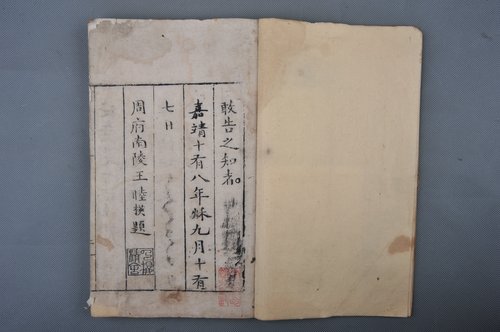 敢告之知者
嘉靖十有八年秌九月十有
七日
周府南陵王睦㮋題